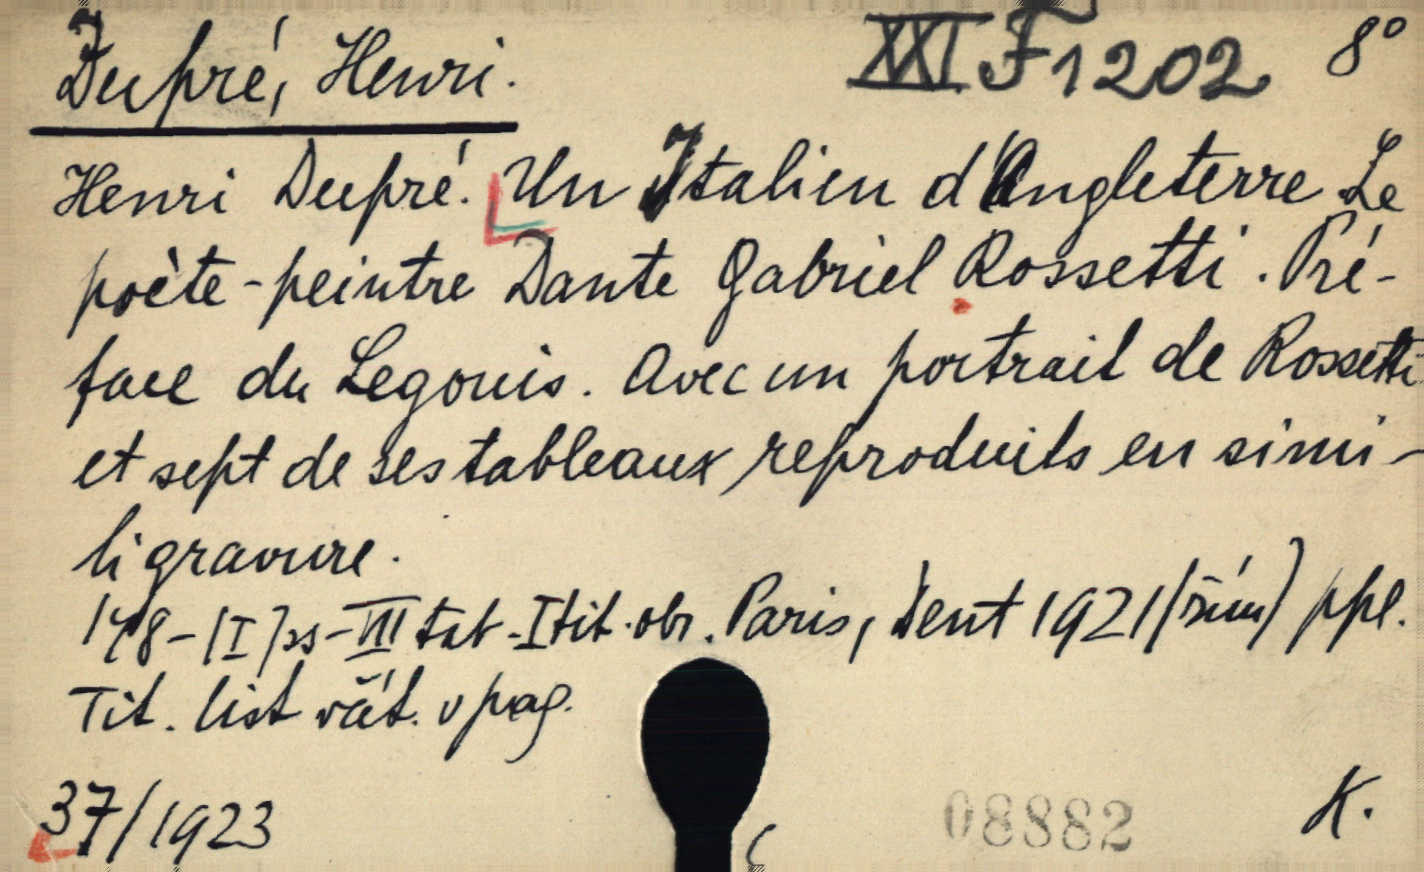 Dupré, Henri. XXI F 1202 8°
Henri Dupré. Un Italien d'Angleterre Le
poète-peintre Dante Gabriel Rossetti. Pré-
face du Legouis. Avec un portrait de Rossetti
et sept de ses tableaux reproduits en simi-
ligravure.
148-[I] ss-VIII tab-I tit. obr. Paris, Dent 1921 (řím) ppl.
Tit. list včít. v pag.
37/1923 08882 K.